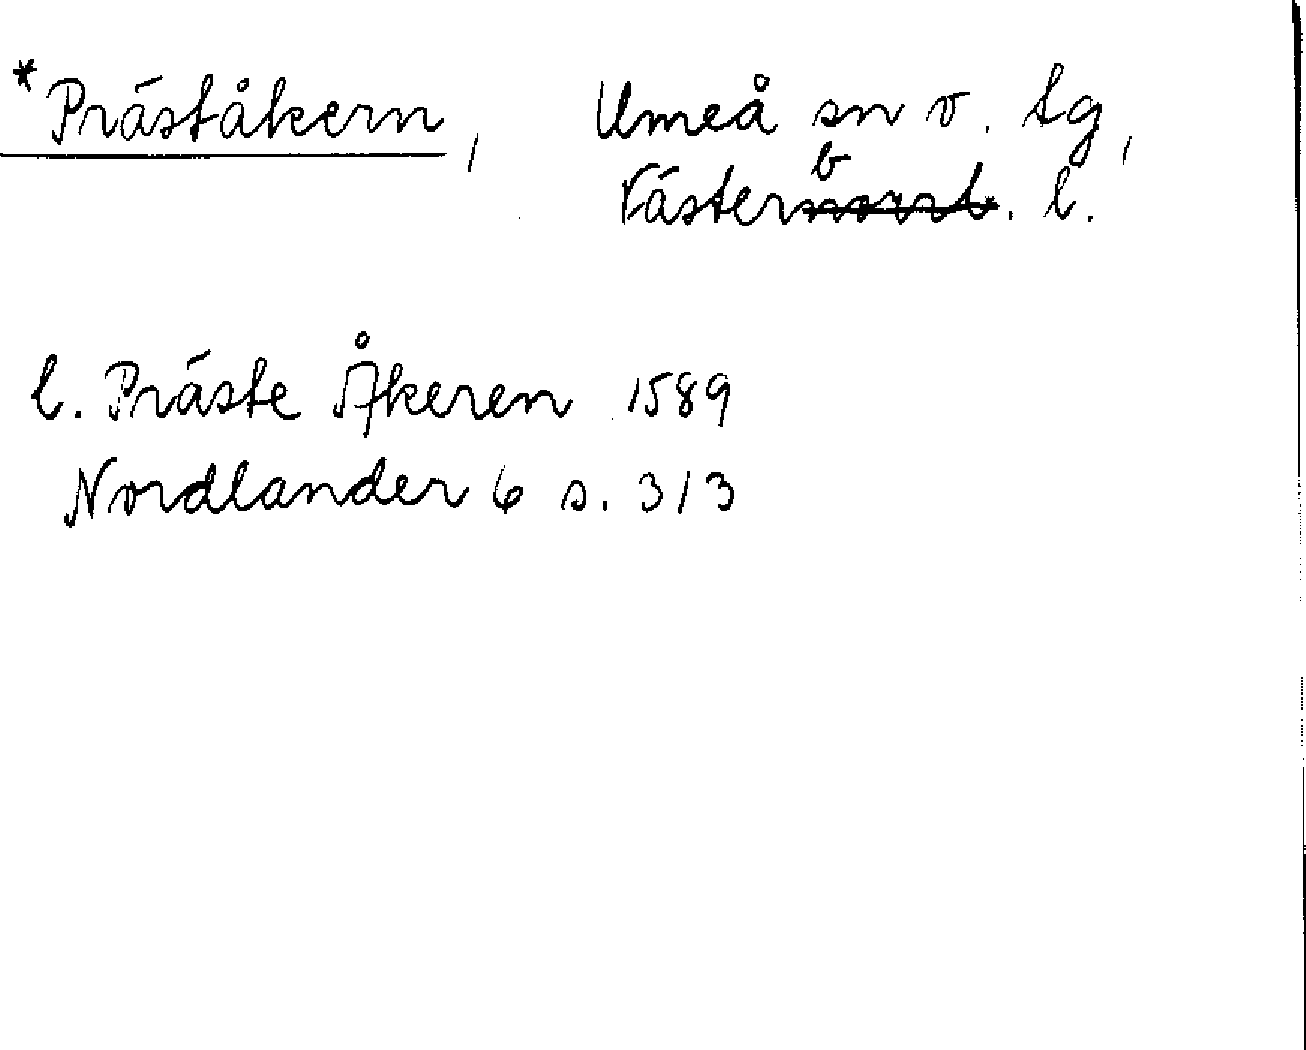 *Präståkern, Umeå sn o. tg,
Västerb. l.
l. Präste Åkeren 1589
Nordlander 6 s. 313